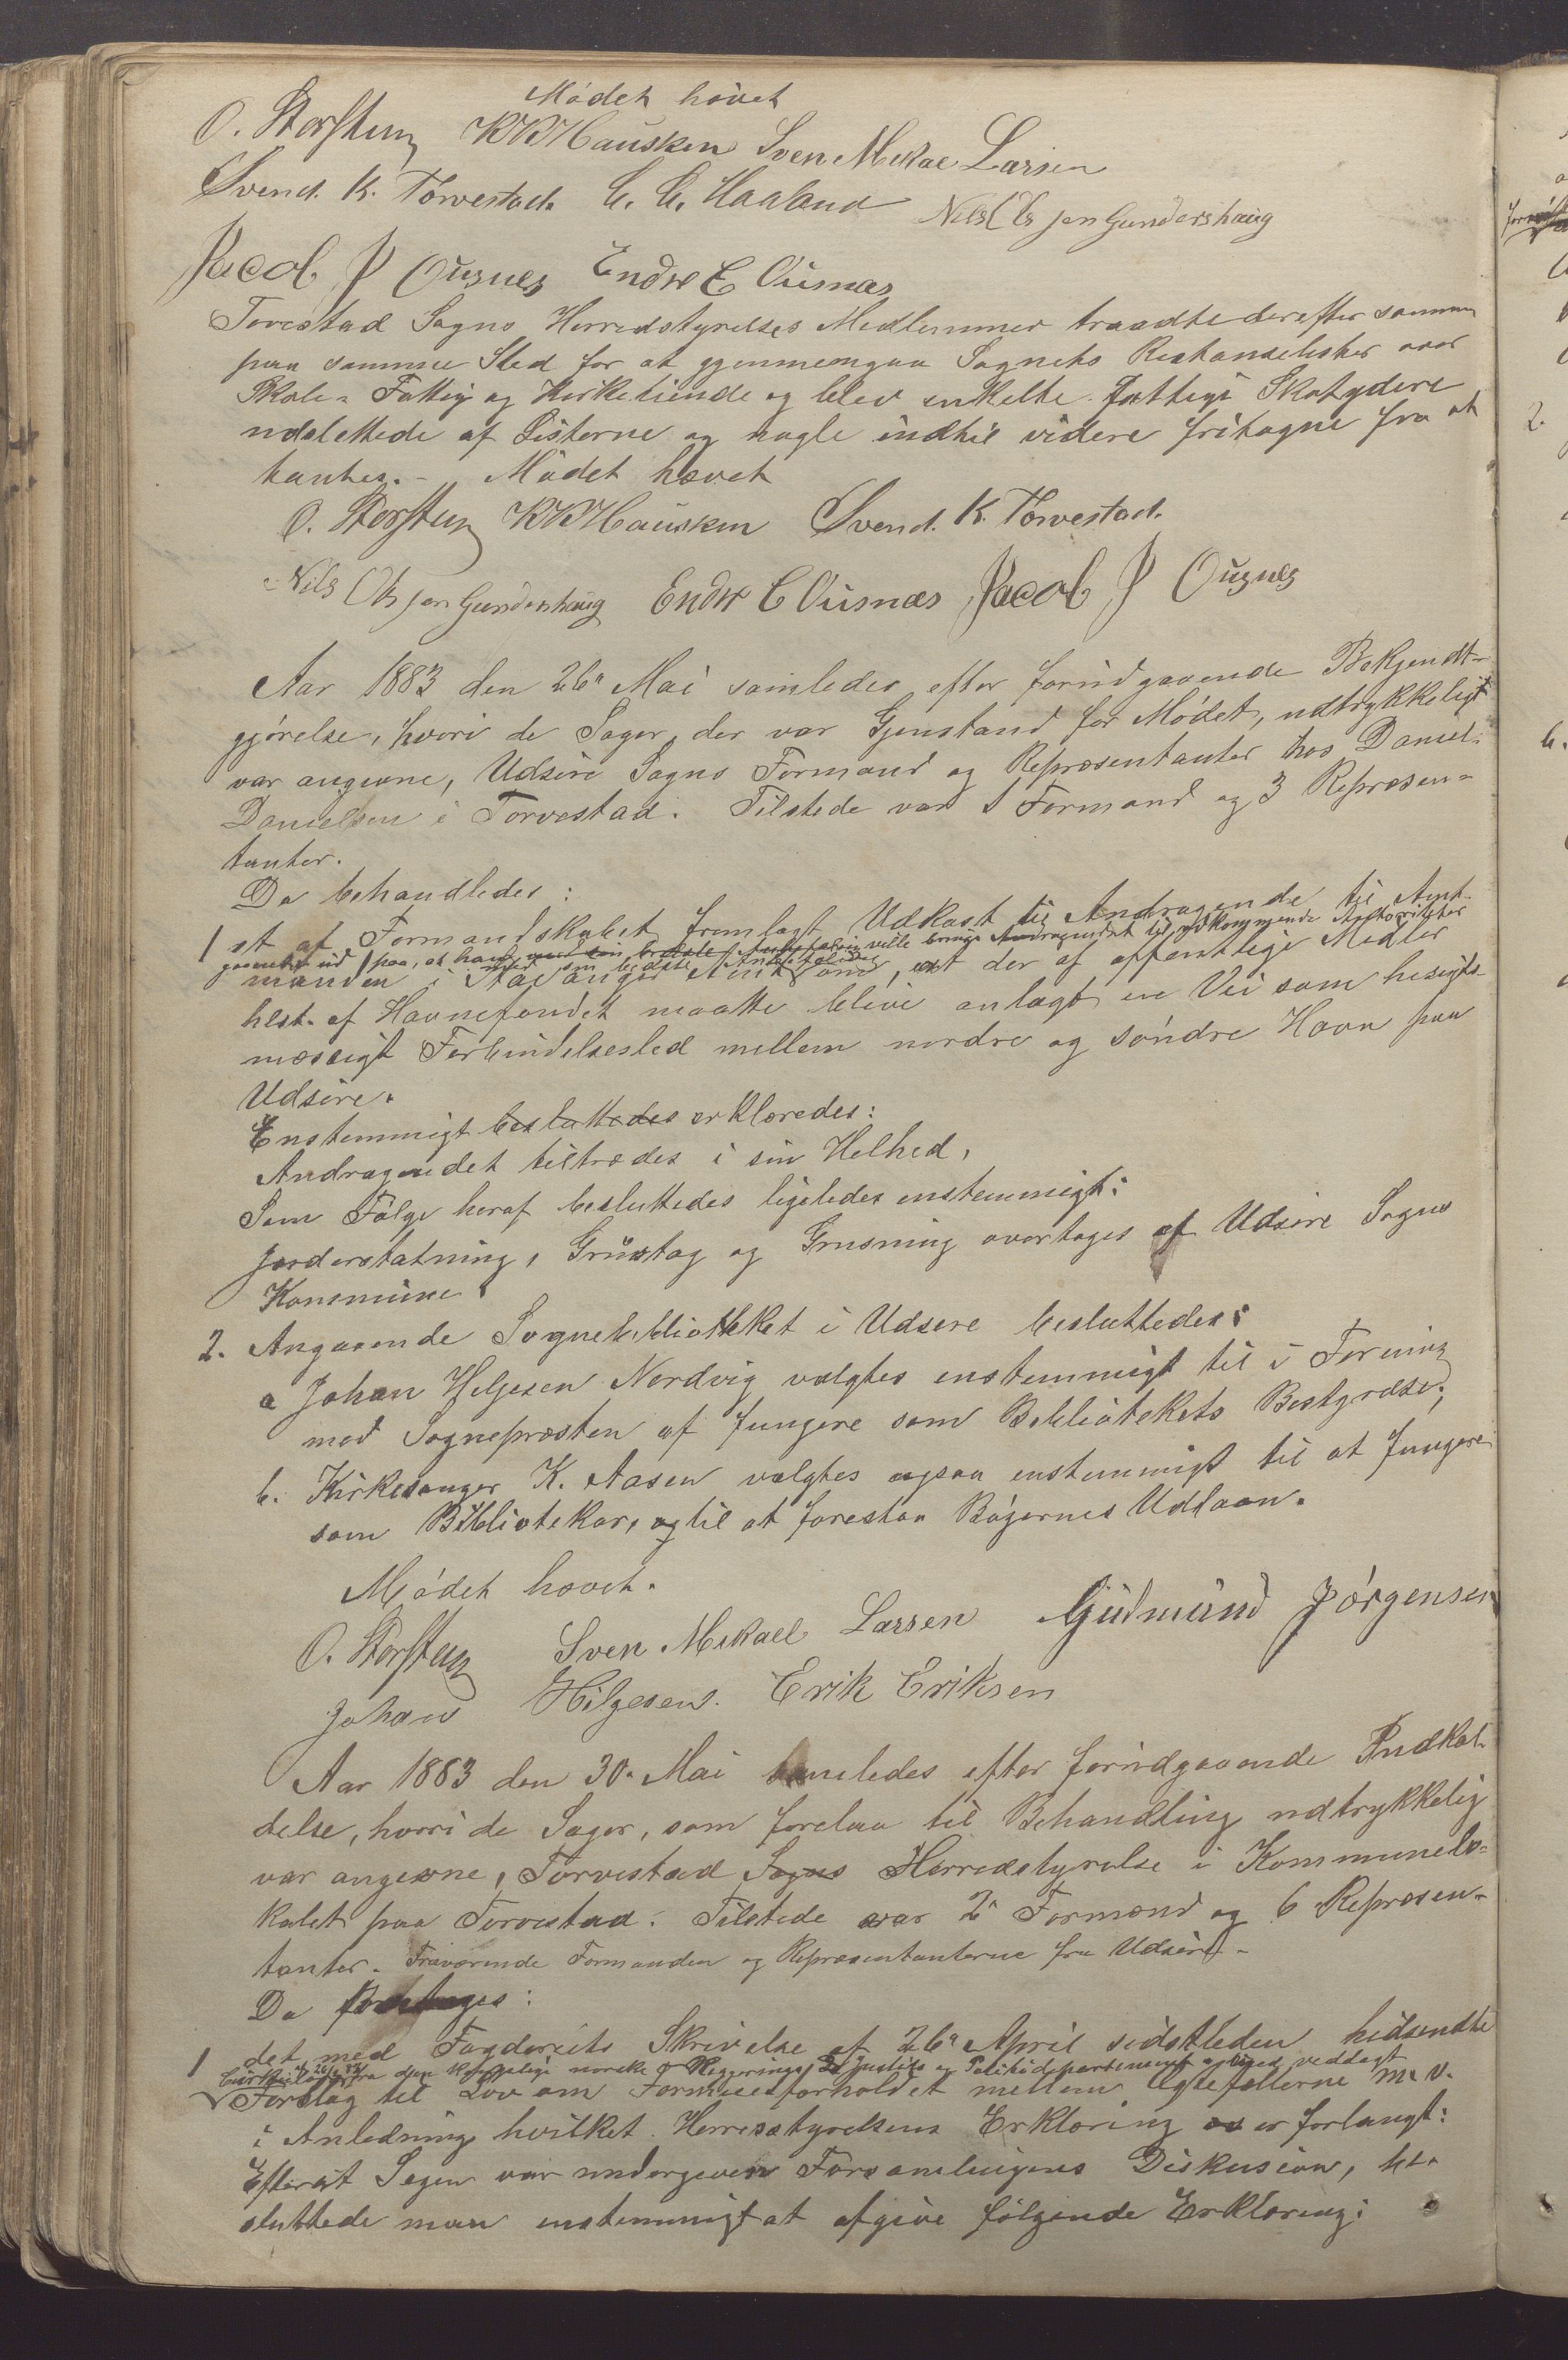 Mödet hævet
O. Storsten KKHausken Sven Mikae Larsen
Svend. K. Torvestad. C. C. Haaland Nils Olsen Gundershaug
Jacob J Ousnes Endre C Ousnæs
Torvestad Sogns Herredstyrelses Medlemmer traadte derefter sammen
paa samme Sted for at gjennemgaa Sognets Restanselister over
Skole- Fattig og Kirketiende og blev enkelte fattige Skatydere
udslettede af Listerne og nogle indtil videre fritagne fra at
pantes. - Mödet hævet
O. Storsten KKHausken Svend. K. Torvestad.
Nils Olsen Gundershaug Endre C Ousnæs Jacob J Ousnes
Aar 1883 den 26n Mai samledes efter forudgaaende Bekjendt-
gjörelse, hvori de Sager, der var Gjenstand for Mödet, udtrykkeligt
var angivne, Udsire Sogns Formænd og Repræsentanter hos Daniel
Danielsen i Torvestad. Tilstede var 1 Formand og 3 Repræsen-
tanter.
Da behandledes:
1 et af Formandskabet fremlagt Udkast til Andragende til Amt-
gaaende ud paa, at han med sin bedste Anbefaling ville bringe Andragendet til vedkommende Autoriteter
manden i Stavanger Amt om, at der af offentlige Midler
helst af Havnefondet maatte blive anlagt en Vei som hesigts-
mæssigt Forbindelsesled mellem nordre og söndre Havn paa
Udsire.
Enstemmigt besluttedes erklæredes:
Andragendet tiltrædes i sin Helhed,
Som Fölge heraf besluttedes ligeledes enstemmigt:
Jorderstatning, Grustag og Grusning overtages af Udsire Sogns
Kommune.
2. Angaaende Sognebibliotheket i Udsere besluttedes:
a Johan Helgesen Nordvig valgtes enstemmigt til i Forening
med Sognepræsten at fungere som Bibliotekets Bestyrelse;
b. Kirkesanger K. Aasen valgtes ogsaa enstemmigt til at fungere
som Bibliotekar, og til at forestaa Bögernes Udlaan.
Mödet hævet.
O. Storsten Sven Mikael Larsen Gudmund Jörgensen
Johan Hilgesen. Erik Eriksen
Aar 1883 den 30. Mai samledes efter forudgaaende Indkal-
delse, hvori de Sager, som forelaa til Behandling udtrykkelig
var angivne, Torvestad Sogns Herredstyrelse i Kommunelo-
kalet paa Torvestad. Tilstede var 2n Formænd og 6 Repræsen-
tanter. Fraværende Formanden og Repræsentanterne fra Udsire. -
Da foretoges:
1 det med Fogderiets Skrivelse af 26n April sidstleden hidsendte
fra den kongelige norske Regjerings Justits og Politidepartement veddagt
Forslag til Lov om Formuesforholdet mellem Ægtefællerne m. v.
i Anledning hvilket Herredstyrelsens Erklæring er forlangt:
Efterat Sagen var undergiven Forsamlingens Diskusion, be-
sluttede man enstemmigt at afgive fölgende Erklæring: